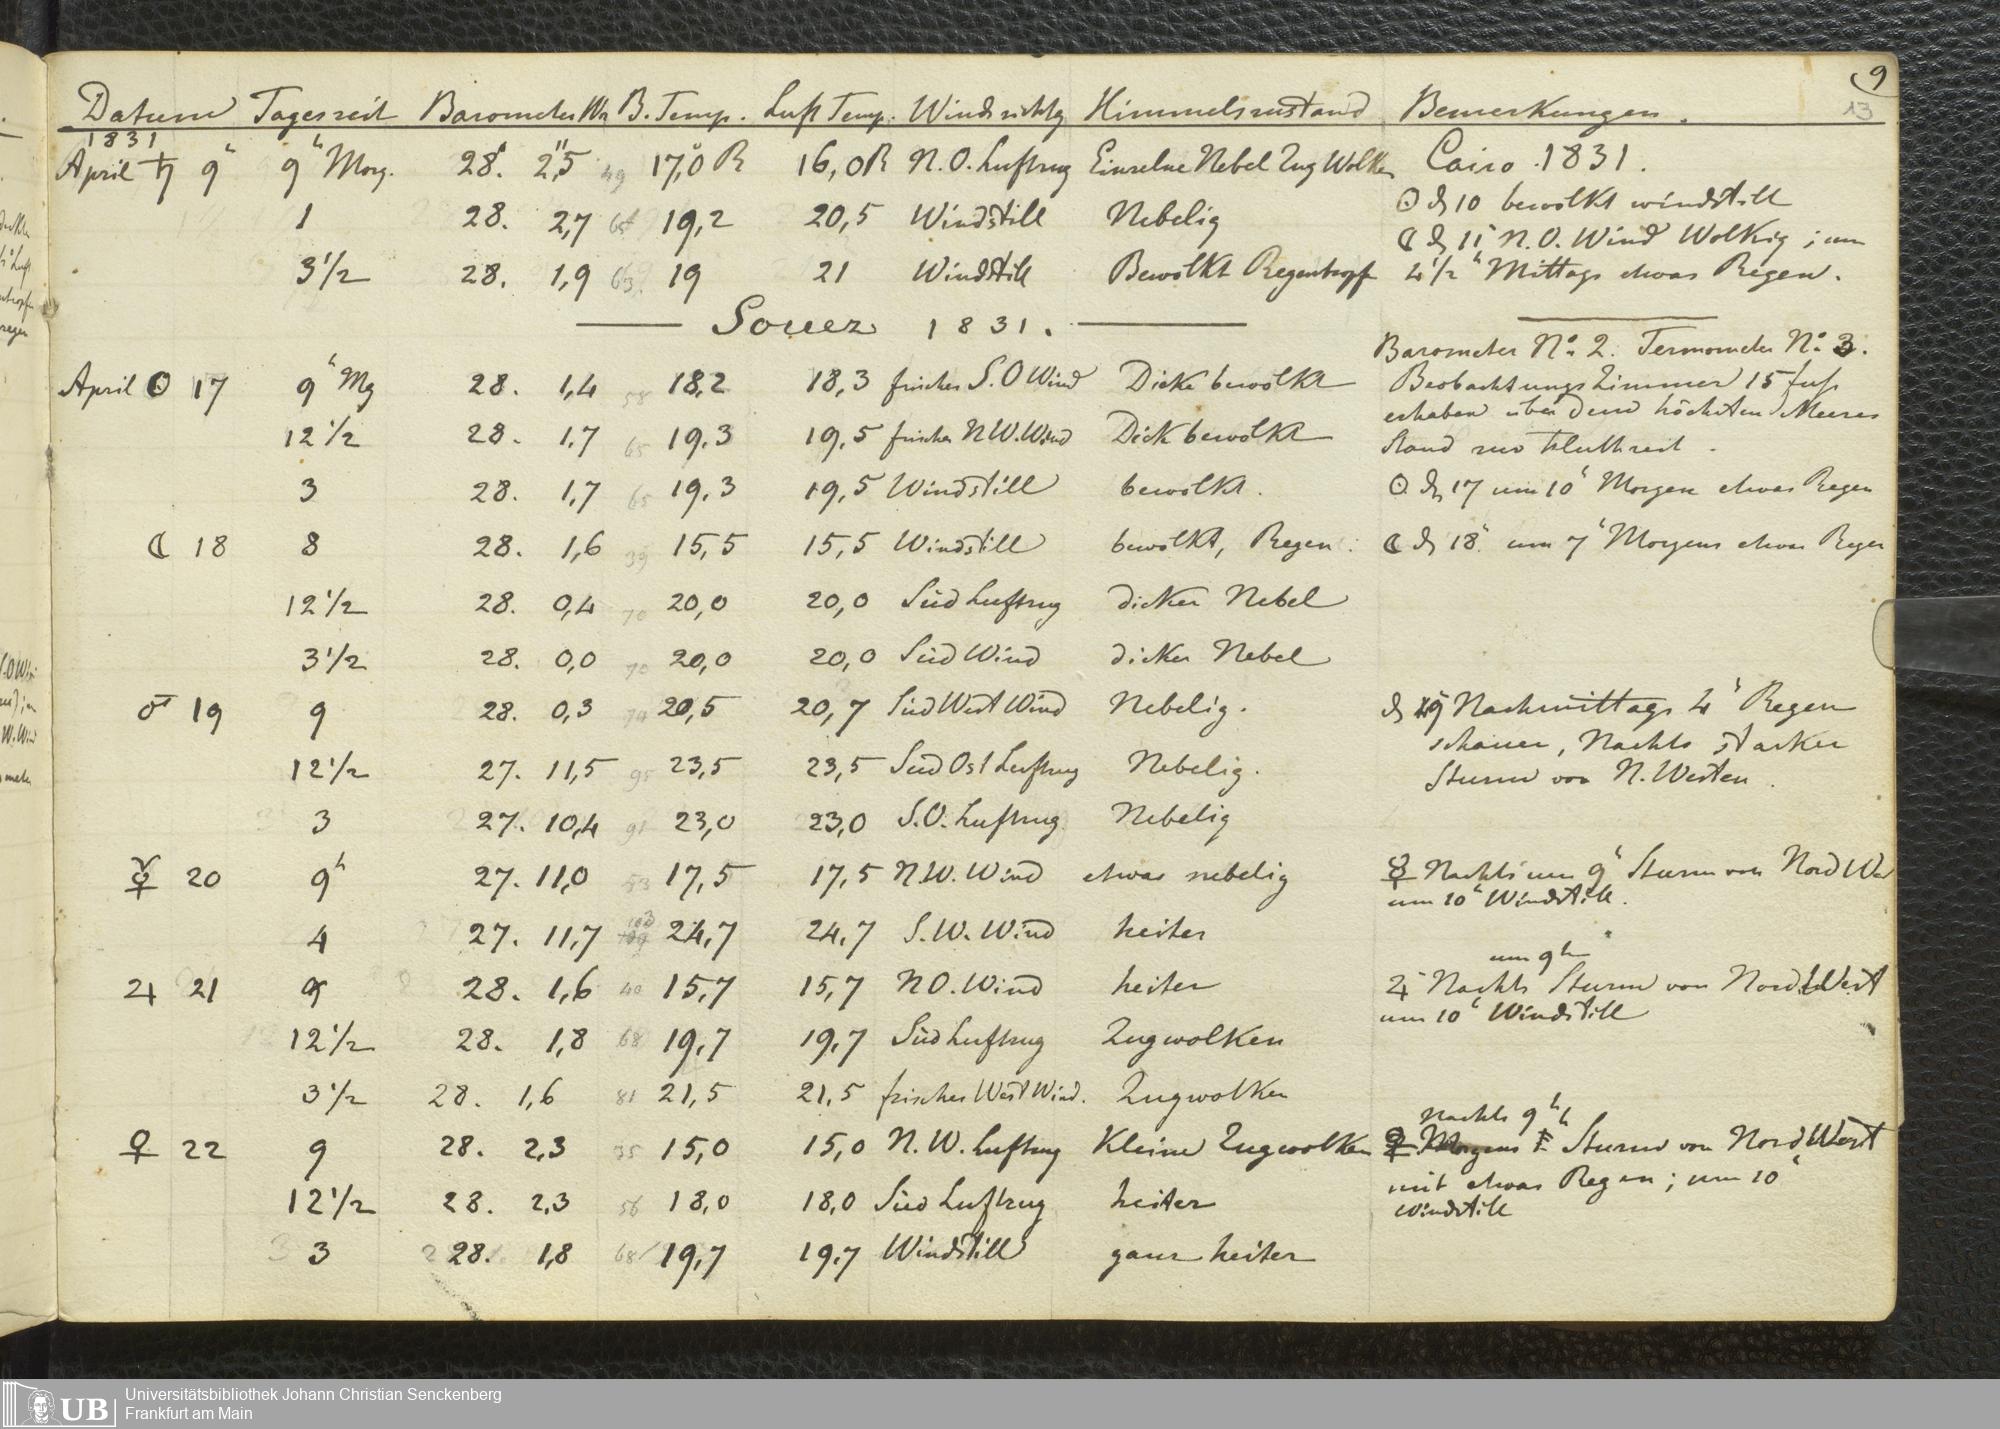 9
13
Datum Tagezeit Barometer B. Temp. Luft Temp. Windrichtg Himmelszustand Bemerkungen.
1831
April ♄ 9 9h Morg. 28. 2,5 49 17,0 R 16,0 R N.O. Luftzug Einzelne Nebel Zug Wolken Cairo 1831.
1 28. 2,7 19,2 20,5 Windstill Nebelig ☉ d 10 bewölkt windstill
☾ d 11 N.O. Wind Wolkig; um
3 1/2 28. 1,9 63 19 21 Windstill Bewölkt Regentropf 4 1/2 h Mittags etwas Regen.
Souez 1831.
Barometer No 2. Termometer No 3.
April ☉ 17 9h Mg 28. 1,4 58 18,2 18,3 frischer S.O Wind Dicke bewölkt Beobachtungs Zimmer 15 fuss
erhaben über dem höchsten Meeres
12 1/2 28. 1,7 65 19,3 19,5 frischer N.W. Wind Dick bewölkt Stand zur Fluthzeit.
3 28. 1,7 65 19,3 19,5 Windstill bewölkt. ☉ d 17 um 10h Morgens etwas Regen
☾ 18 8 28. 1,6 39 15,5 15,5 Windstill bewölkt, Regen. ☾ d 18. um 7h Morgens etwas Regen
12 1/2 28. 0,4 70 20,0 20,0 Süd Luftzug dicker Nebel
3 1/2 28. 0,0 70 20,0 20,0 Süd Wind dicker Nebel
♂ 19 9 28. 0,3 74 20,5 20,7 Süd West Wind Nebelig. d 19 Nachmittags 4h Regen
schauer, Nachts starker
12 1/2 27. 11,5 95 23,5 23,5 Süd Ost Luftzug Nebelig. Sturm von N. Westen.
3 27. 10,4 91 23,0 23,0 S.O. Luftzug Nebelig
☿ 20 9h 27. 11,0 53 17,5 17,5 N.W. Wind etwas nebelig ☿ Nachts um 9h Sturm von Nord West
um 10h Windstill.
4 27. 11,7 103 24,7 24,7 S.W. Wind heiter
um 9h
♃ 21 9 28. 1,6 40 15,7 15,7 N O. Wind heiter ♃ Nachts Sturm von Nord West
um 10h Windstill
12 1/2 28. 1,8 68 19,7 19,7 Süd Luftzug Zugwolken
3 1/2 28. 1,6 81 21,5 21,5 frischer West Wind. Zugwolken
Nachts 9h
♀ 22 9 28. 2,3 35 15,0 15,0 N.W. Luftzug Kleine Zugwolken ♀ Morgens Sturm von Nord West
mit etwas Regen; um 10h
12 1/2 28. 2,3 56 18,0 18,0 Süd Luftzug heiter windstill
3 28. 1,8 68 19,7 19,7 Windstill ganz heiter
UB Universitätsbibliothek Johann Christian Senckenberg
Frankfurt am Main